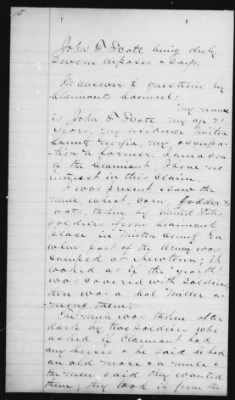 5
John D Scott being duly
Sworn deposes & Says,
In answer to questions by
Claimants Counsel:
My name
is John D Scott my age 21
years, my residence Milton
County Georgia, my occupa-
tion a farmer. I am a son
of the Claimant I have no
interest in this claim.
I was present & saw the
mule, wheat, corn, fodder &
oats, taken by United States
soldiers from claimants
place in Milton County Ga
when part of the Army was
camped at Newtown; it
looked as if the "earth"
was covered with soldiers,
there was a Col. Miller a-
mong them.
The mule was taken after
dark by two soldiers who
asked if Claimant had
any horses & he said he had
an old mare & a mule &
the men said they wanted
them; they took it from the